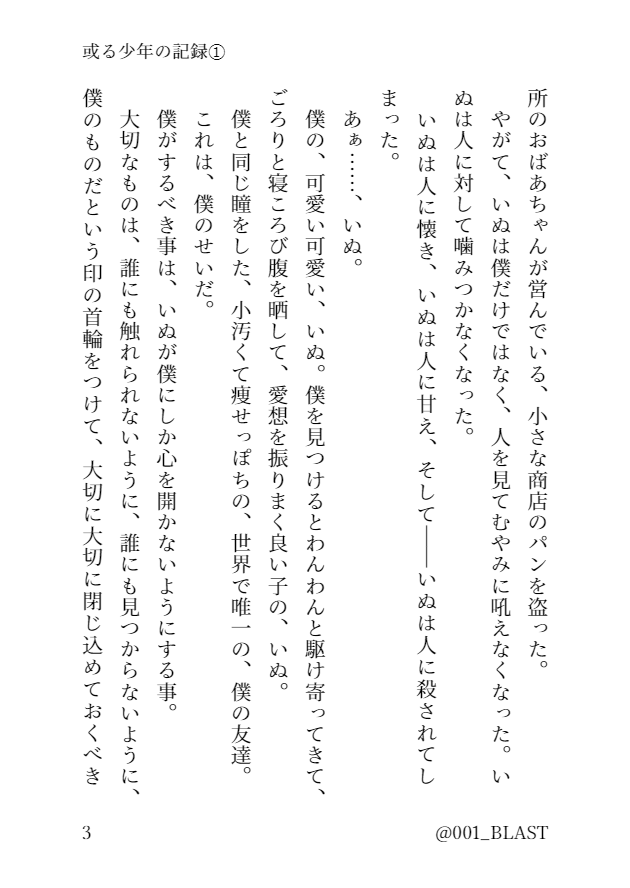 或る少年の記録①
所のおばあちゃんが営んでいる、小さな商店のパンを盗った。
やがて、いぬは僕だけではなく、人を見てむやみに吼えなくなった。い
ぬは人に対して噛みつかなくなった。
いぬは人に懐き、いぬは人に甘え、そして――いぬは人に殺されてし
まった。
あぁ……、いぬ。
僕の、可愛い可愛い、いぬ。僕を見つけるとわんわんと駆け寄ってきて、
ごろりと寝ころび腹を晒して、愛想を振りまく良い子の、いぬ。
僕と同じ瞳をした、小汚くて痩せっぽちの、世界で唯一の、僕の友達。
これは、僕のせいだ。
僕がするべき事は、いぬが僕にしか心を開かないようにする事。
大切なものは、誰にも触れられないように、誰にも見つからないように、
僕のものだという印の首輪をつけて、大切に大切に閉じ込めておくべき
3
@001_BLAST